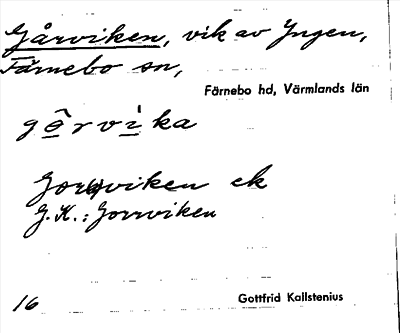 Gårviken, vik av Yngen,
Färnebo sn,
Färnebo hd, Värmlands län
gôrvìka
Jorqviken ek
G. K.: Jorrviken
16
Gottfrid Kallstenius